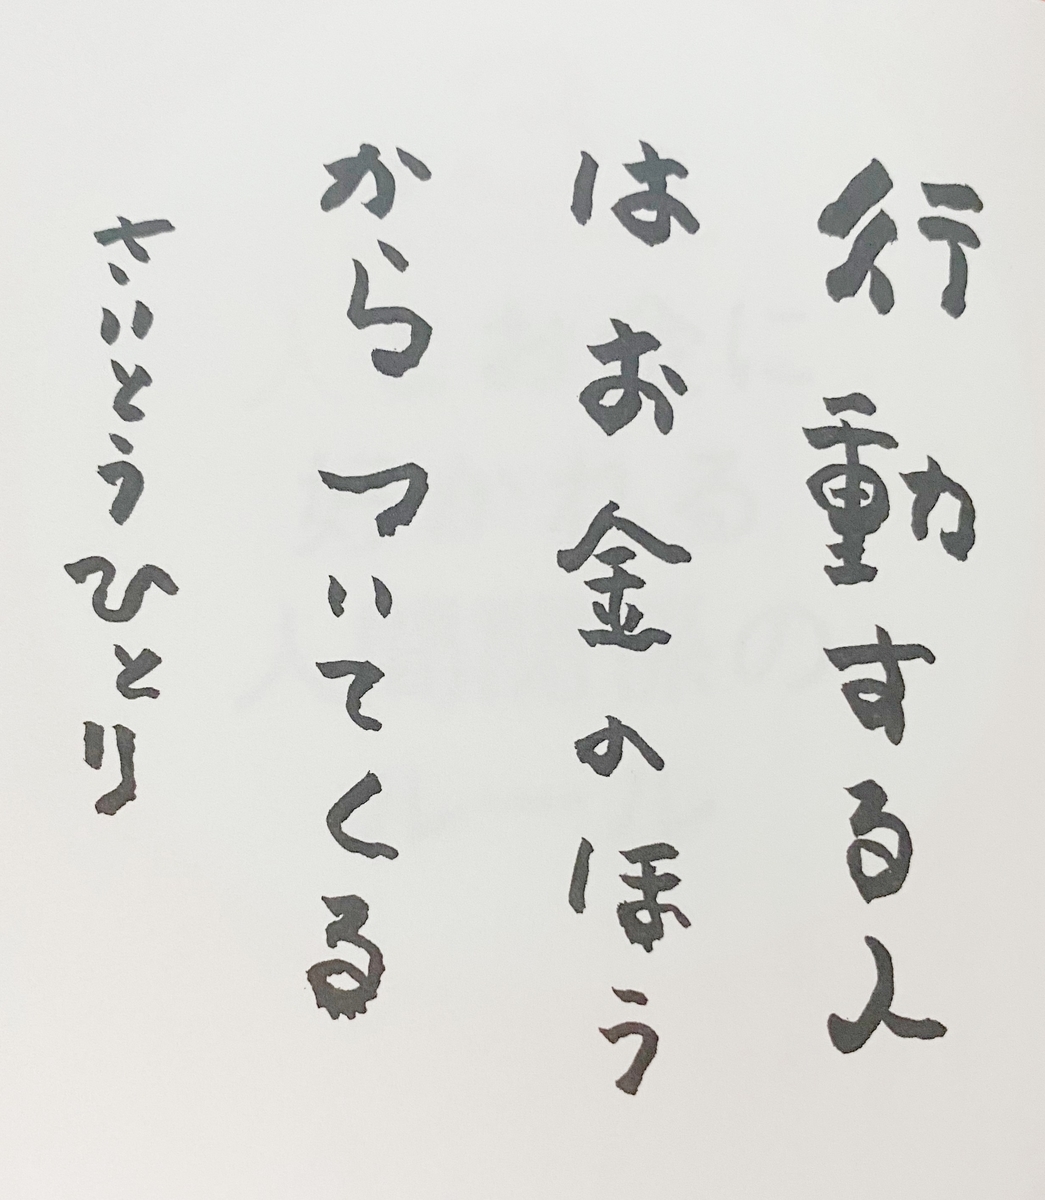 行動する人
はお金のほう
からついてくる
さいとうひとり